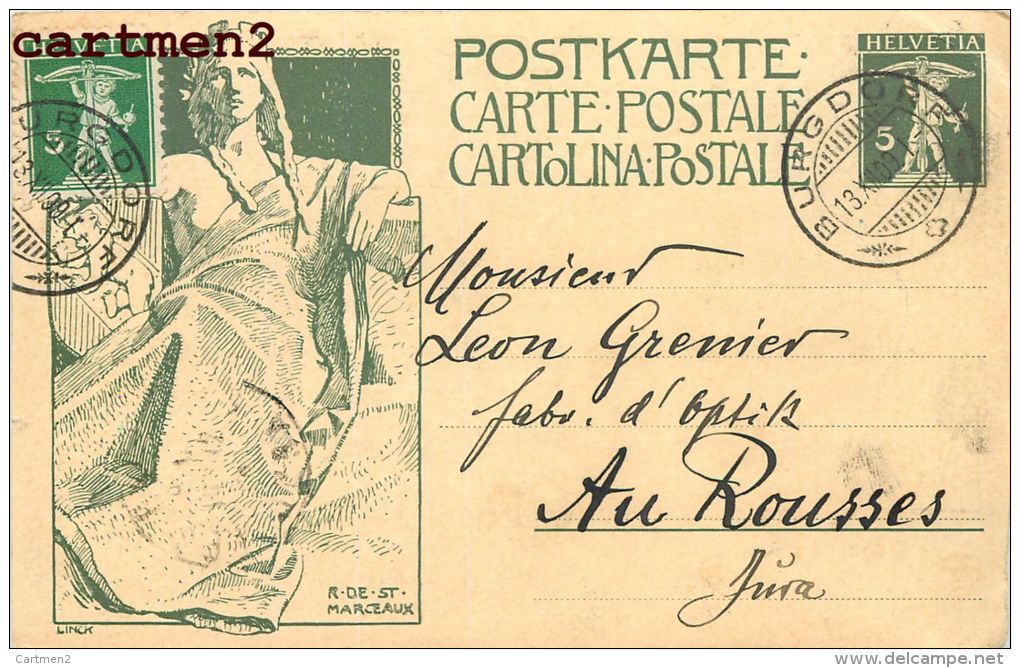 cartmen2
HELVETIA
5
POSTKARTE·
CARTE·POSTALE
CARTOLINA·POSTAL
HELVETIA
5
BURGDORF
BURGDORF
13.XII.09
Monsieur
Leon Grenier
fabr. d'Optik
Au Rousses
Jura
R·DE·ST·
MARCEAUX
LINCK
Cartmen2
delcampe.net